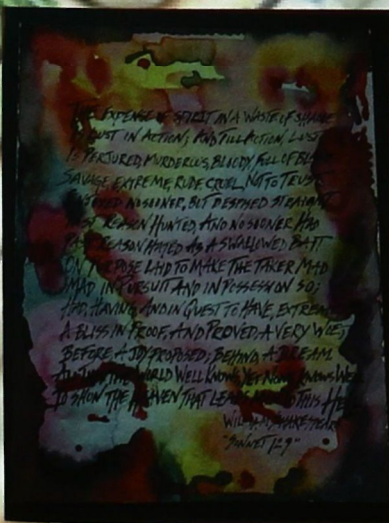 THE EXPENSE OF SPIRIT IN A WASTE OF SHAME
IS LUST IN ACTION; AND TILL ACTION, LUST
IS PERJURED, MURDEROUS, BLOODY, FULL OF BLAME
SAVAGE, EXTREME, RUDE, CRUEL, NOT TO TRUST
ENJOYED NO SOONER, BUT DESPISED STRAIGHT
PAST REASON HUNTED, AND NO SOONER HAD
PAST REASON HATED AS A SWALLOWED BAIT
ON PURPOSE LAID TO MAKE THE TAKER MAD
MAD IN PURSUIT AND IN POSSESSION SO;
HAD, HAVING, AND IN QUEST TO HAVE, EXTREME
A BLISS IN PROOF, AND PROVED, A VERY WOE;
BEFORE, A JOY PROPOSED; BEHIND, A DREAM
ALL THIS THE WORLD WELL KNOWS YET NONE KNOWS WELL
TO SHUN THE HEAVEN THAT LEADS MEN TO THIS HELL
WILLIAM SHAKESPEARE
"SONNET 129"